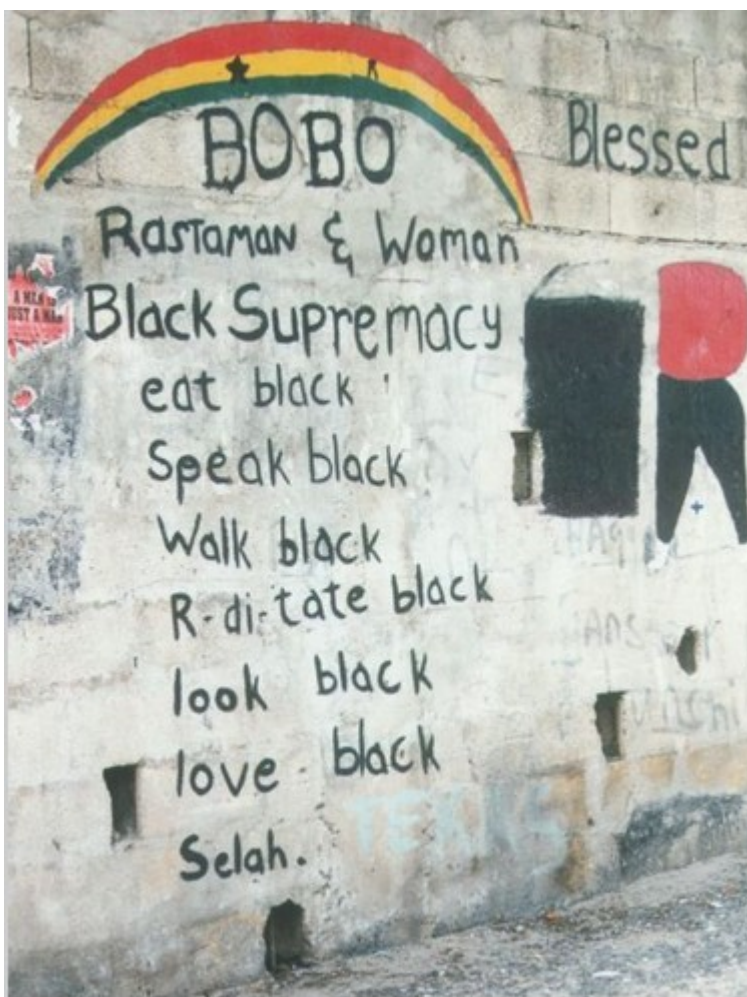 BOBO
Blessed
RASTAMAN & Woman
Black Supremacy
eat black
Speak black
Walk black
R-di-tate black
look black
love black
Selah.
A MAN IS
JUST A MAN
R
TEXAS